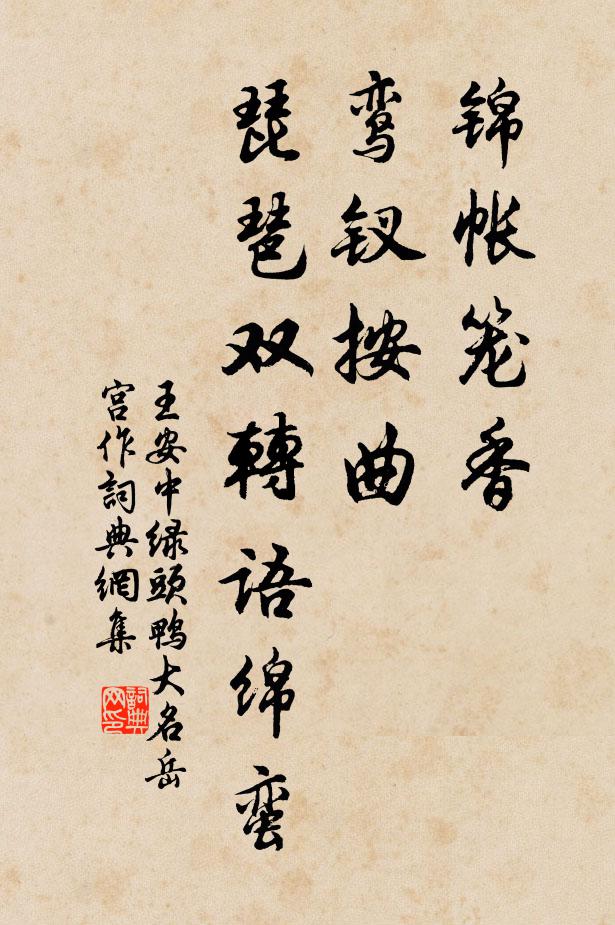 锦帐笼香
鸾钗按曲
琵琶双轉语绵蛮
王安中绿頭鸭大名岳
宫作詞典網集
詞典
网印